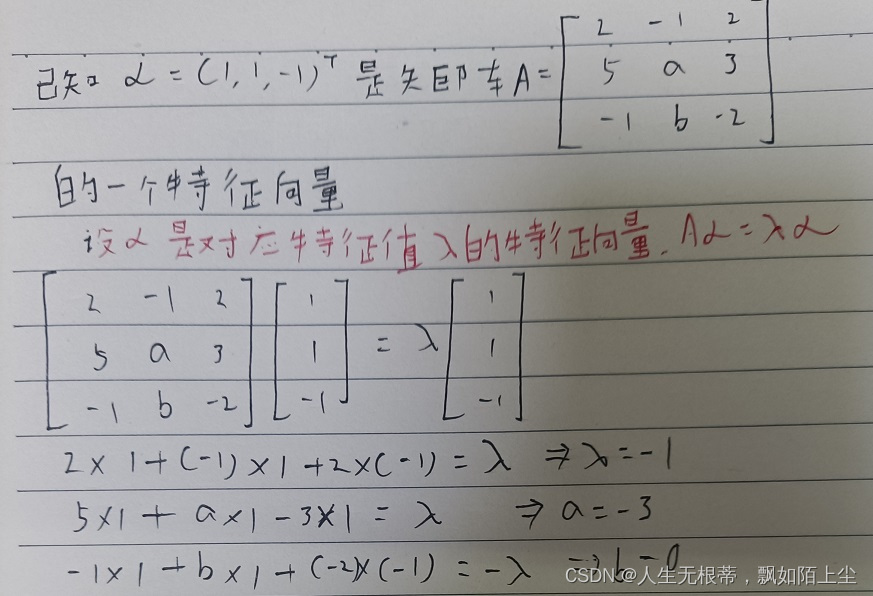 已知 α = (1, 1, -1)ᵀ 是矩阵 A = [2 -1 2; 5 a 3; -1 b -2]
的一个特征向量
设α是对应特征值λ的特征向量. Aα = λα
[2 -1 2; 5 a 3; -1 b -2] [1; 1; -1] = λ [1; 1; -1]
2×1+(-1)×1+2×(-1) = λ ⇒ λ = -1
5×1 + a×1 - 3×1 = λ ⇒ a = -3
-1×1 + b×1 + (-2)×(-1) = -λ ⇒ b = 0
CSDN @人生无根蒂，飘如陌上尘